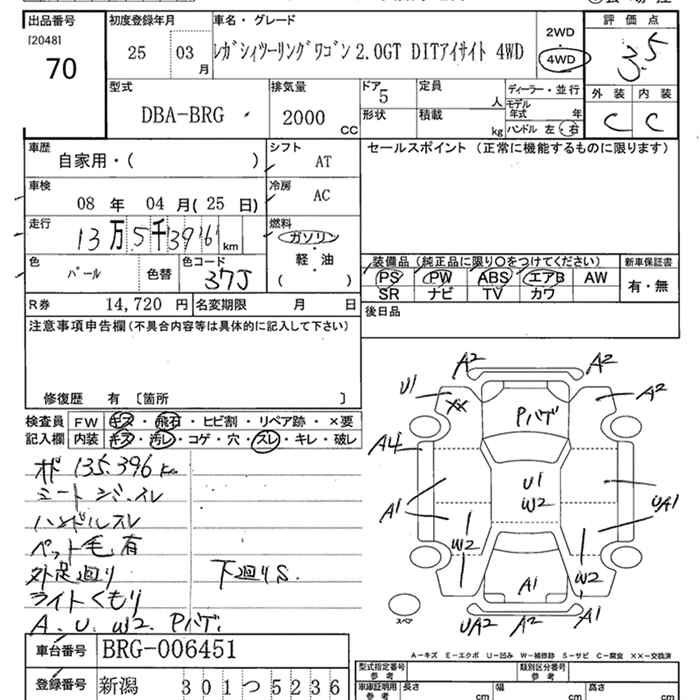 出品番号
[2048]
70
初度登録年月
25
03
月
車名・グレード
レガシィツーリングワゴン 2.0GT DITアイサイト 4WD
2WD
4WD
評価点
3.5
型式
DBA-BRG
排気量
2000
CC
ドア
5
形状
定員
人
積載
kg
ディーラー・並行
モデル
年式 年
ハンドル 左・右
外装
内装
C
C
車歴
自家用・( )
シフト
AT
セールスポイント (正常に機能するものに限ります)
車検
08 年 04 月(25 日)
冷房
AC
走行
13万5千396 km
燃料
ガソリン
軽・油
( )
色
パール
色替
色コード
37J
装備品(純正品に限り○をつけてください)
PS PW ABS エアB AW
SR ナビ TV カワ
新車保証書
有・無
R券
14,720 円
名変期限 月 日
後日品
注意事項申告欄(不具合内容等は具体的に記入して下さい)
修復歴 有 [箇所 ]
検査員
記入欄
FW キズ・飛石・ヒビ割・リペア跡・×要
内装 キズ・汚レ・コゲ・穴・スレ・キレ・破レ
オド 135.396 km
シートシミ.スレ
ハンドルスレ
ペット毛有
外足廻り 下廻りS.
ライトくもり
A. U. W2. Pハゲ.
A2
A2
U1
XX
A2
Pハゲ
A4
A1
U1
W2
UA1
W2
W2
A1
UA2
A2
A1
スペア
車台番号
BRG-006451
登録番号
新潟 301つ5236
A-キズ E-エクボ U-凹み W-補修跡 S-サビ C-腐食 XX-交換済
型式指定番号
類別区分番号
車庫証明用
参考
長さ
cm
幅
cm
高さ
cm